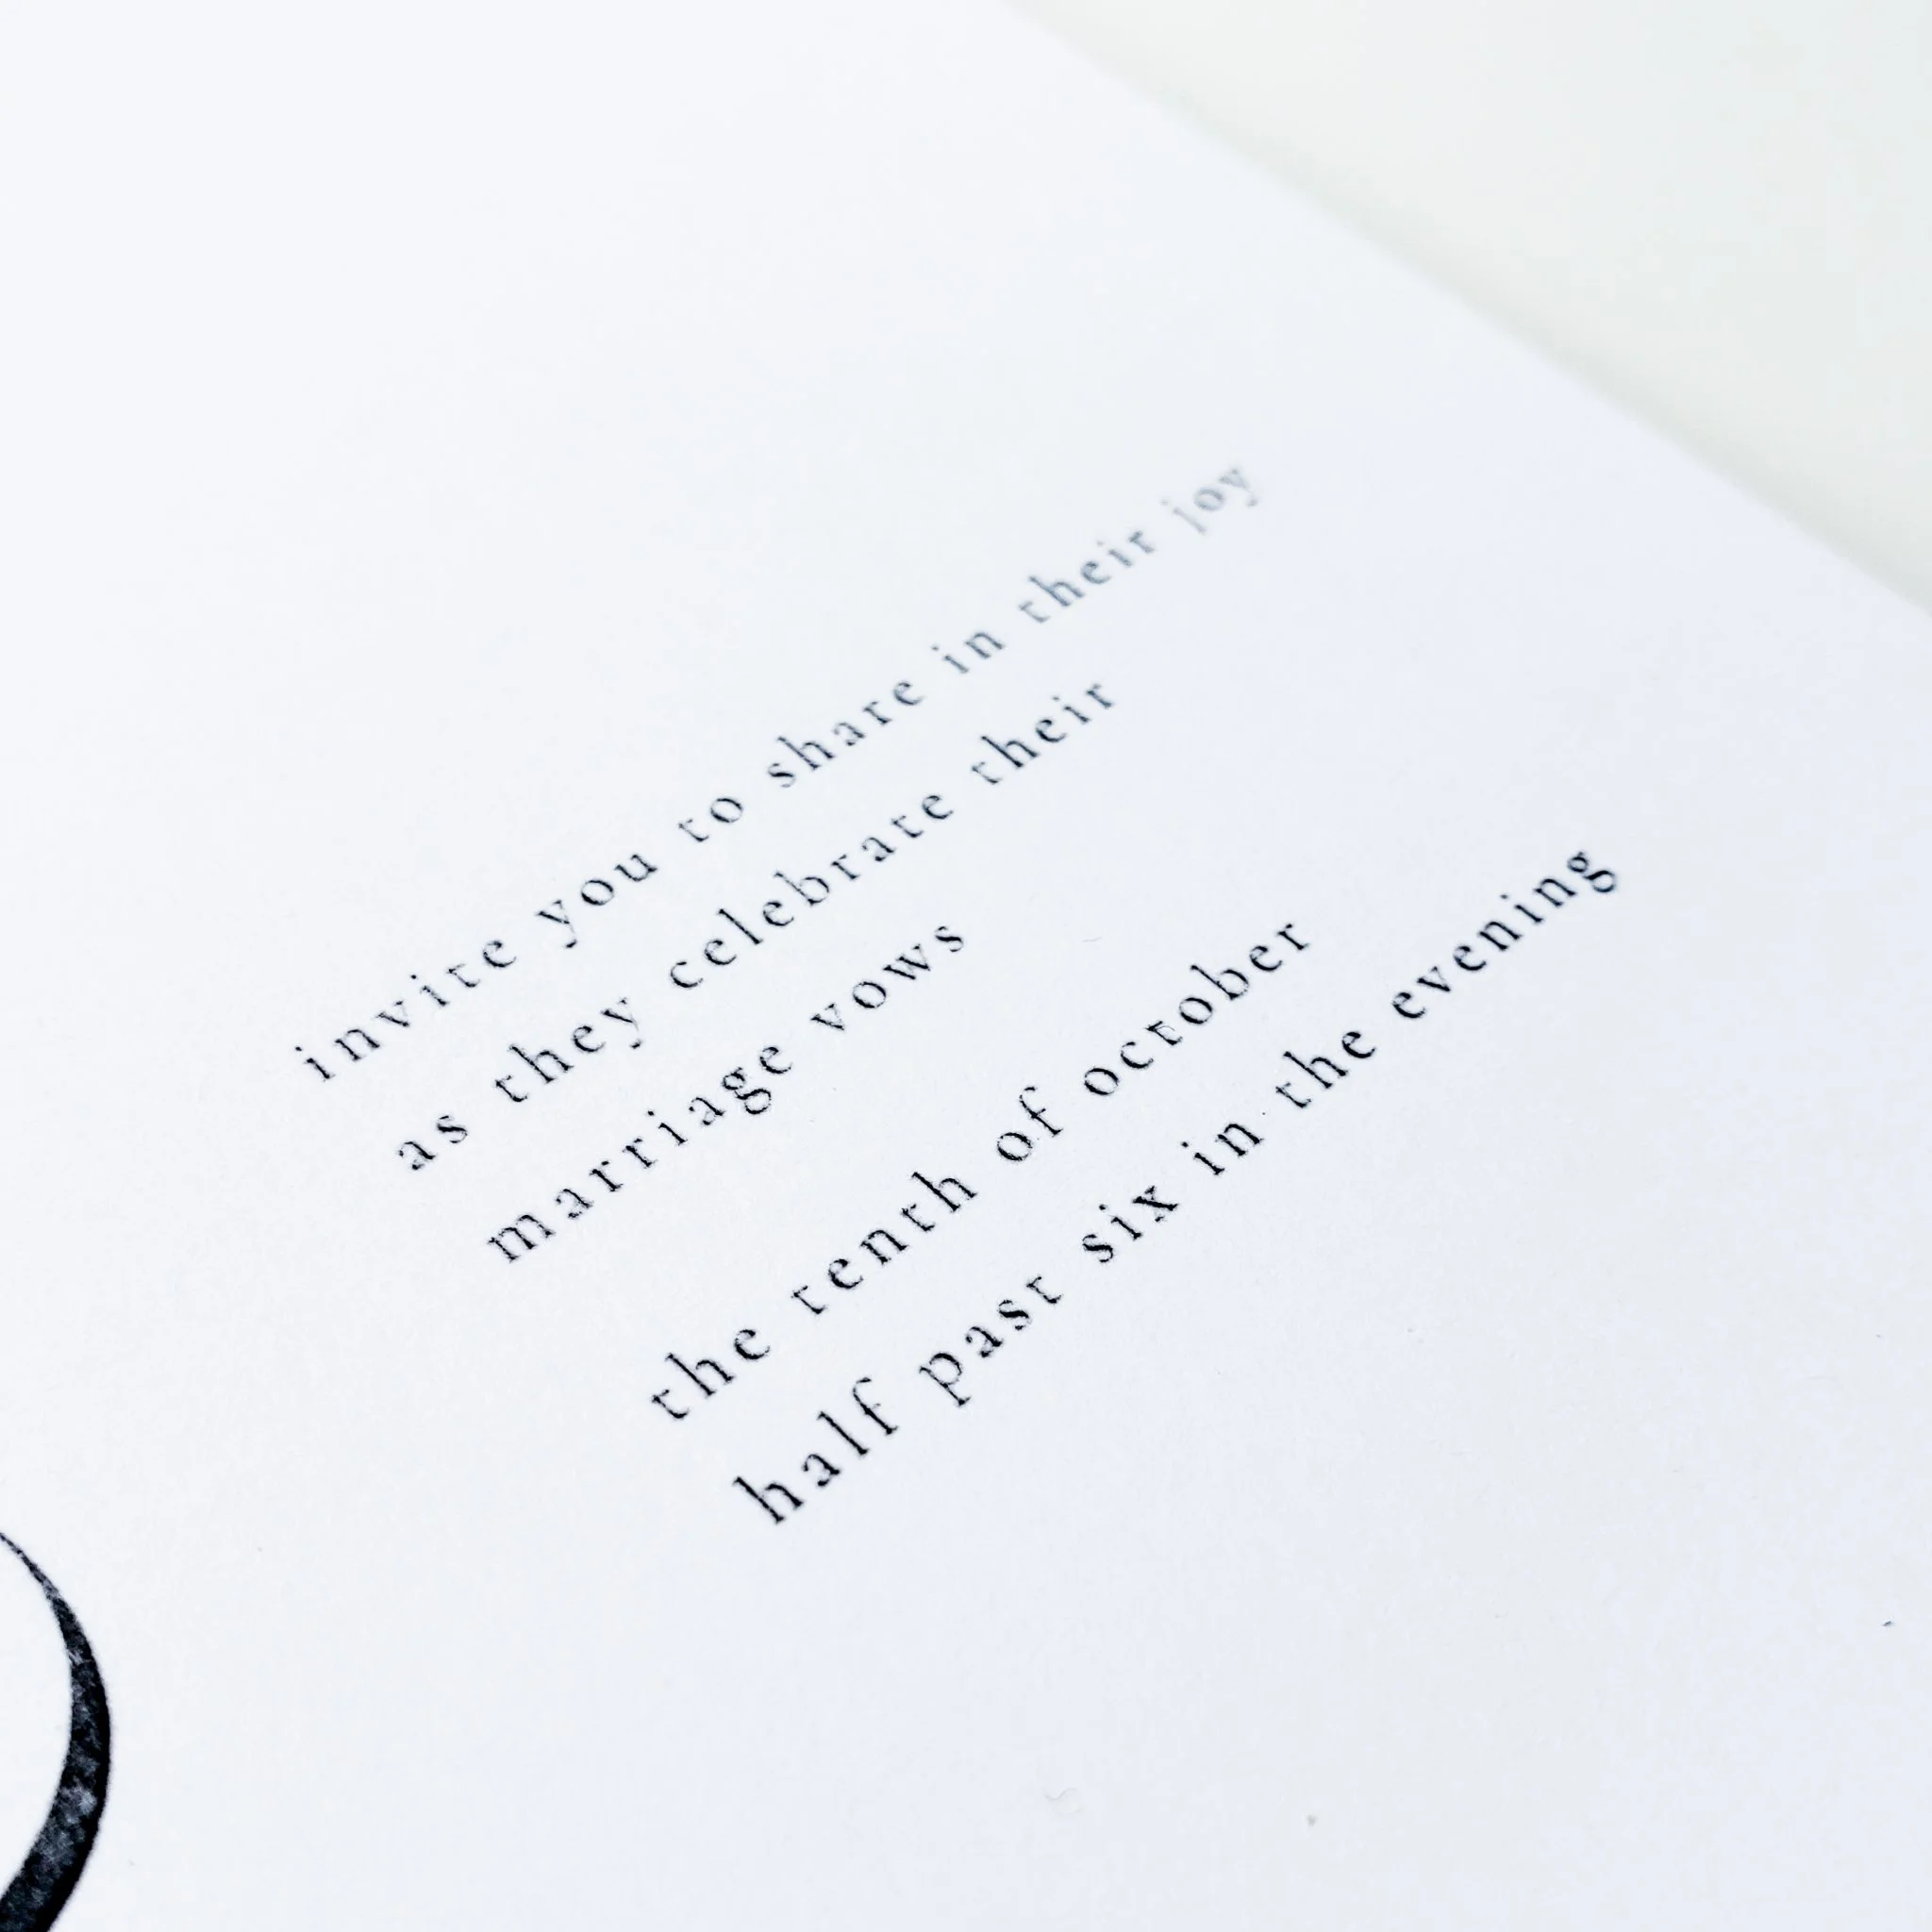 invite you to share in their joy
as they celebrate their
marriage vows
the tenth of october
half past six in the evening